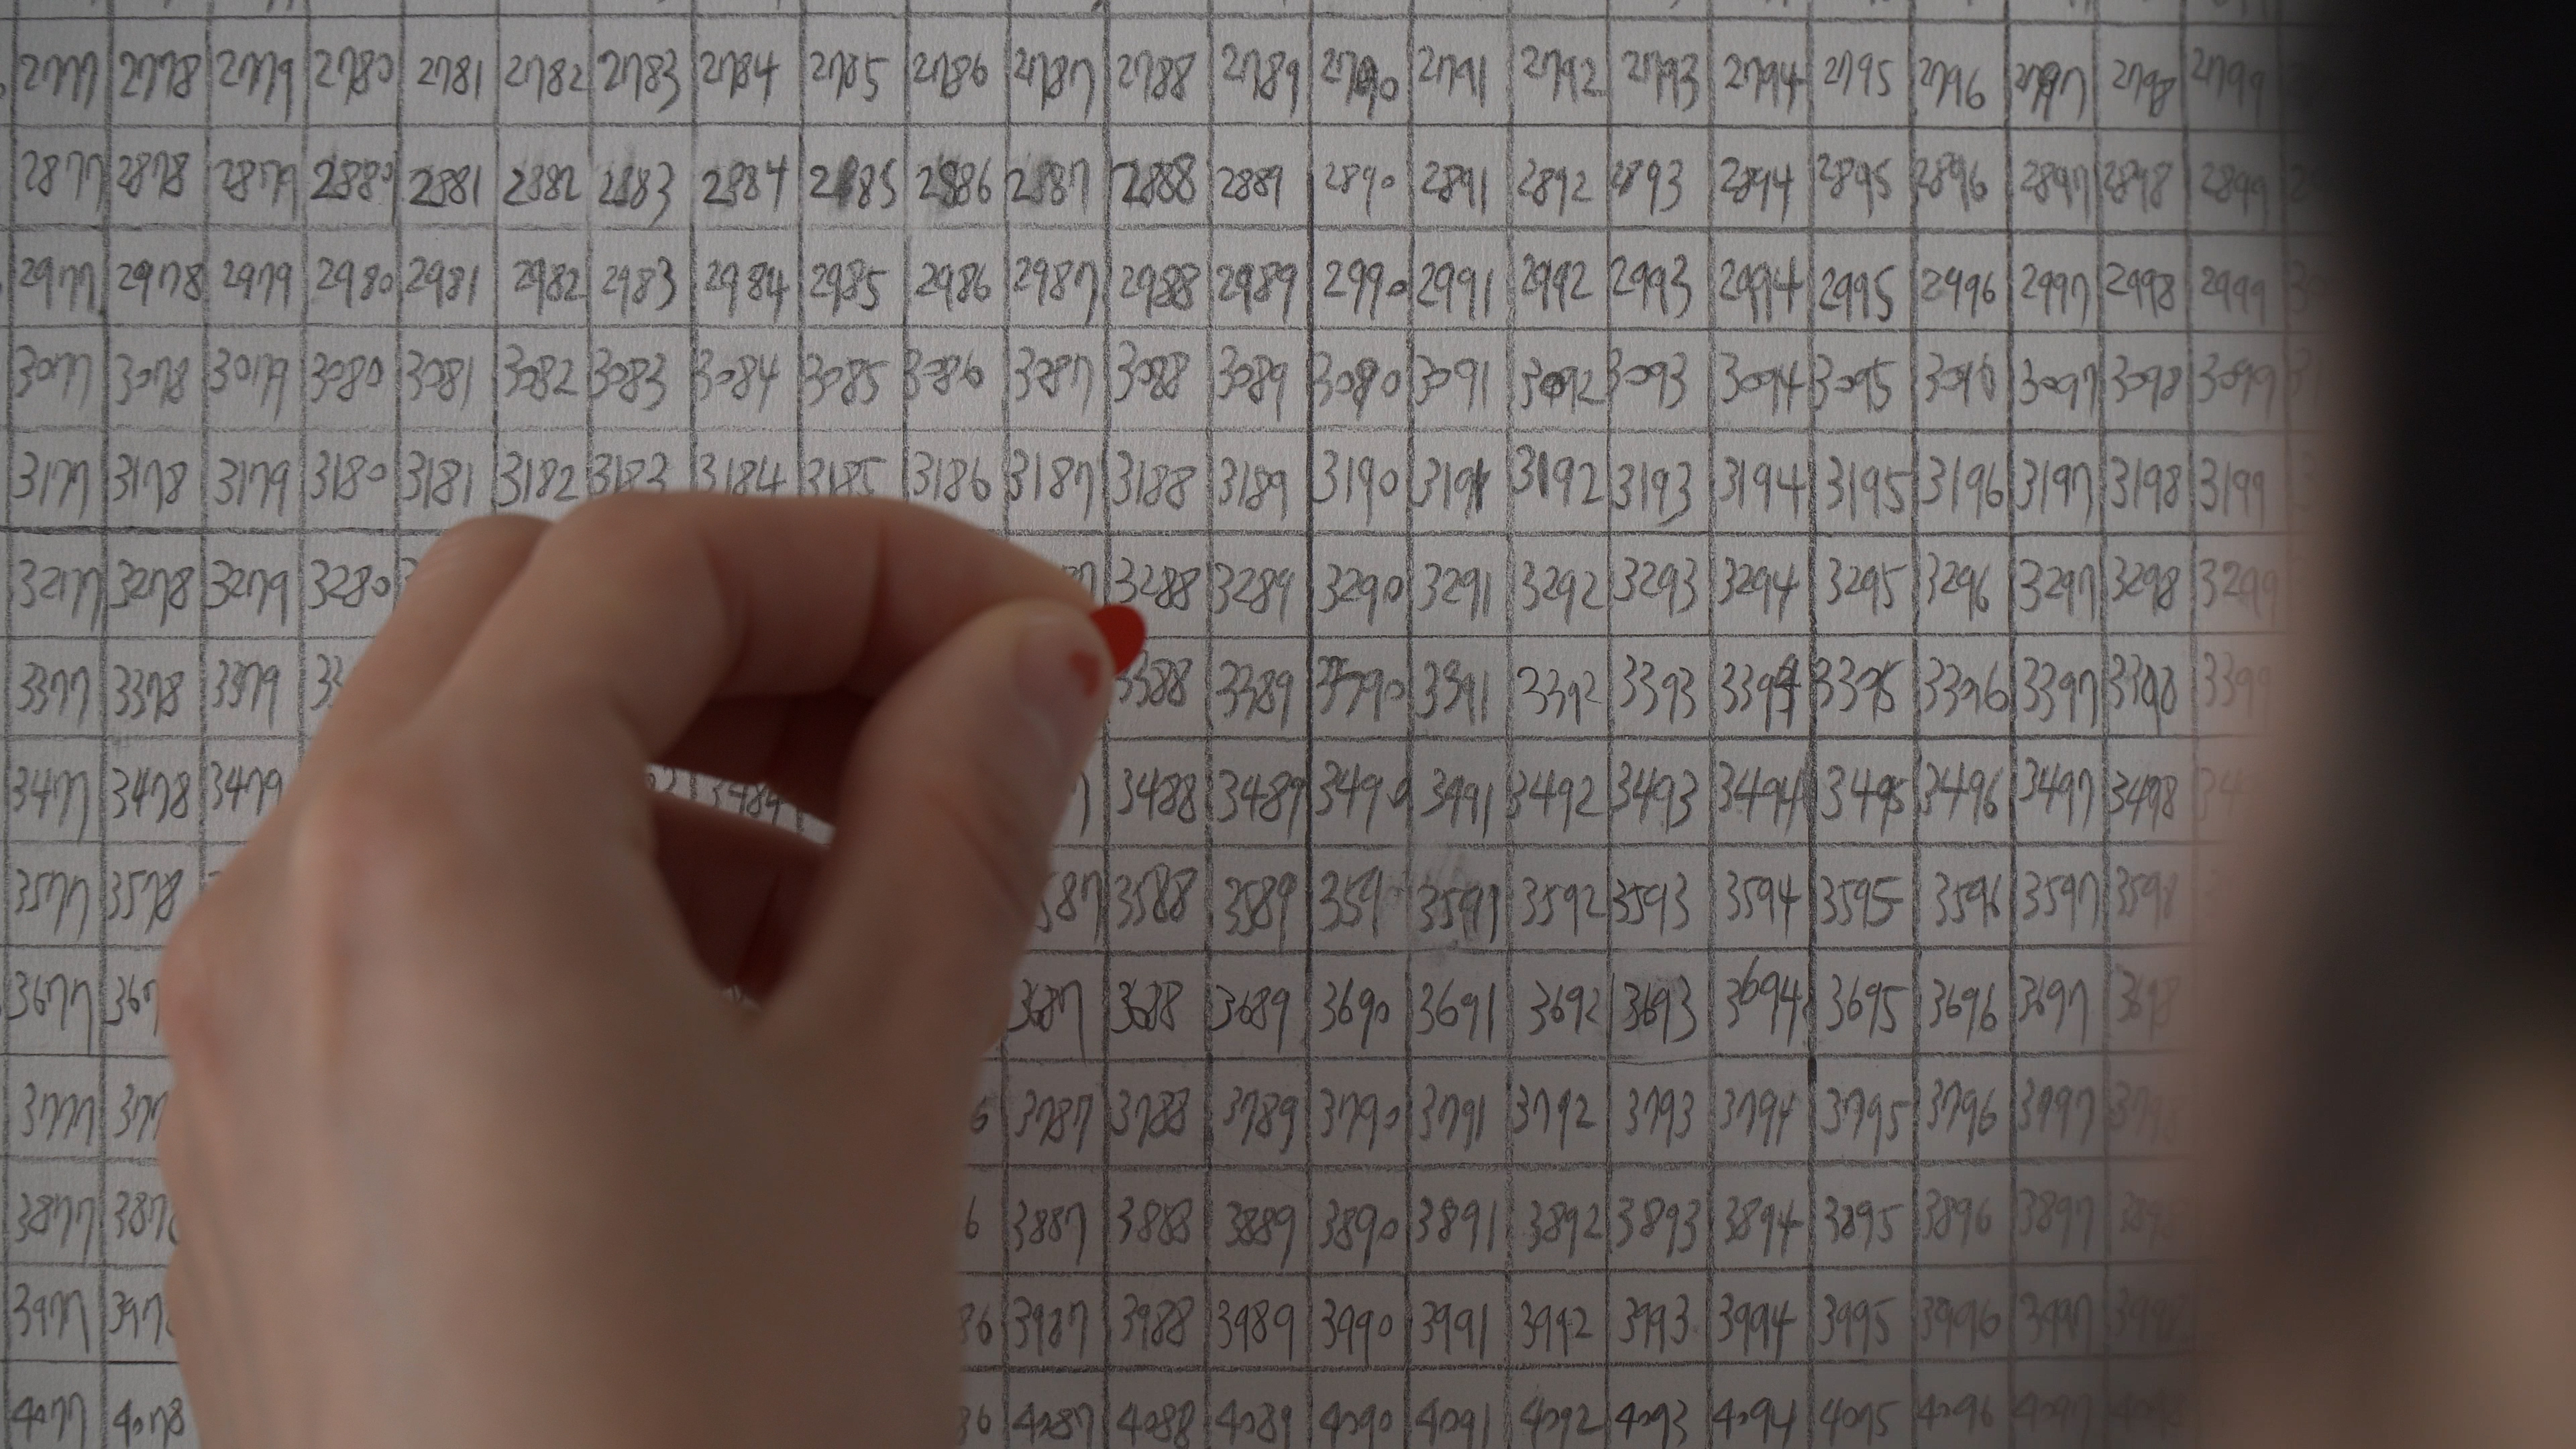 2777 2778 2779 2780 2781 2782 2783 2784 2785 2786 2787 2788 2789 2790 2791 2792 2793 2794 2795 2796 2797 2798 2799
2877 2878 2879 2880 2881 2882 2883 2884 2885 2886 2887 2888 2889 2890 2891 2892 2893 2894 2895 2896 2897 2898 2899
2977 2978 2979 2980 2981 2982 2983 2984 2985 2986 2987 2988 2989 2990 2991 2992 2993 2994 2995 2996 2997 2998 2999
3077 3078 3079 3080 3081 3082 3083 3084 3085 3086 3087 3088 3089 3090 3091 3092 3093 3094 3095 3096 3097 3098 3099
3177 3178 3179 3180 3181 3182 3183 3184 3185 3186 3187 3188 3189 3190 3191 3192 3193 3194 3195 3196 3197 3198 3199
3277 3278 3279 3280 3288 3289 3290 3291 3292 3293 3294 3295 3296 3297 3298 3299
3377 3378 3379 3388 3389 3390 3391 3392 3393 3394 3395 3396 3397 3398 3399
3477 3478 3479 3484 3488 3489 3490 3491 3492 3493 3494 3495 3496 3497 3498
3577 3578 3588 3589 359 3591 3592 3593 3594 3595 3596 3597 3598
3677 3687 3688 3689 3690 3691 3692 3693 3694 3695 3696 3697 3698
3777 3787 3788 3789 3790 3791 3792 3793 3794 3795 3796 3797 3798
3877 3887 3888 3889 3890 3891 3892 3893 3894 3895 3896 3897 3898
3977 3987 3988 3989 3990 3991 3992 3993 3994 3995 3996 3997 3998
4077 4078 4087 4088 4089 4090 4091 4092 4093 4094 4095 4096 4097 4098